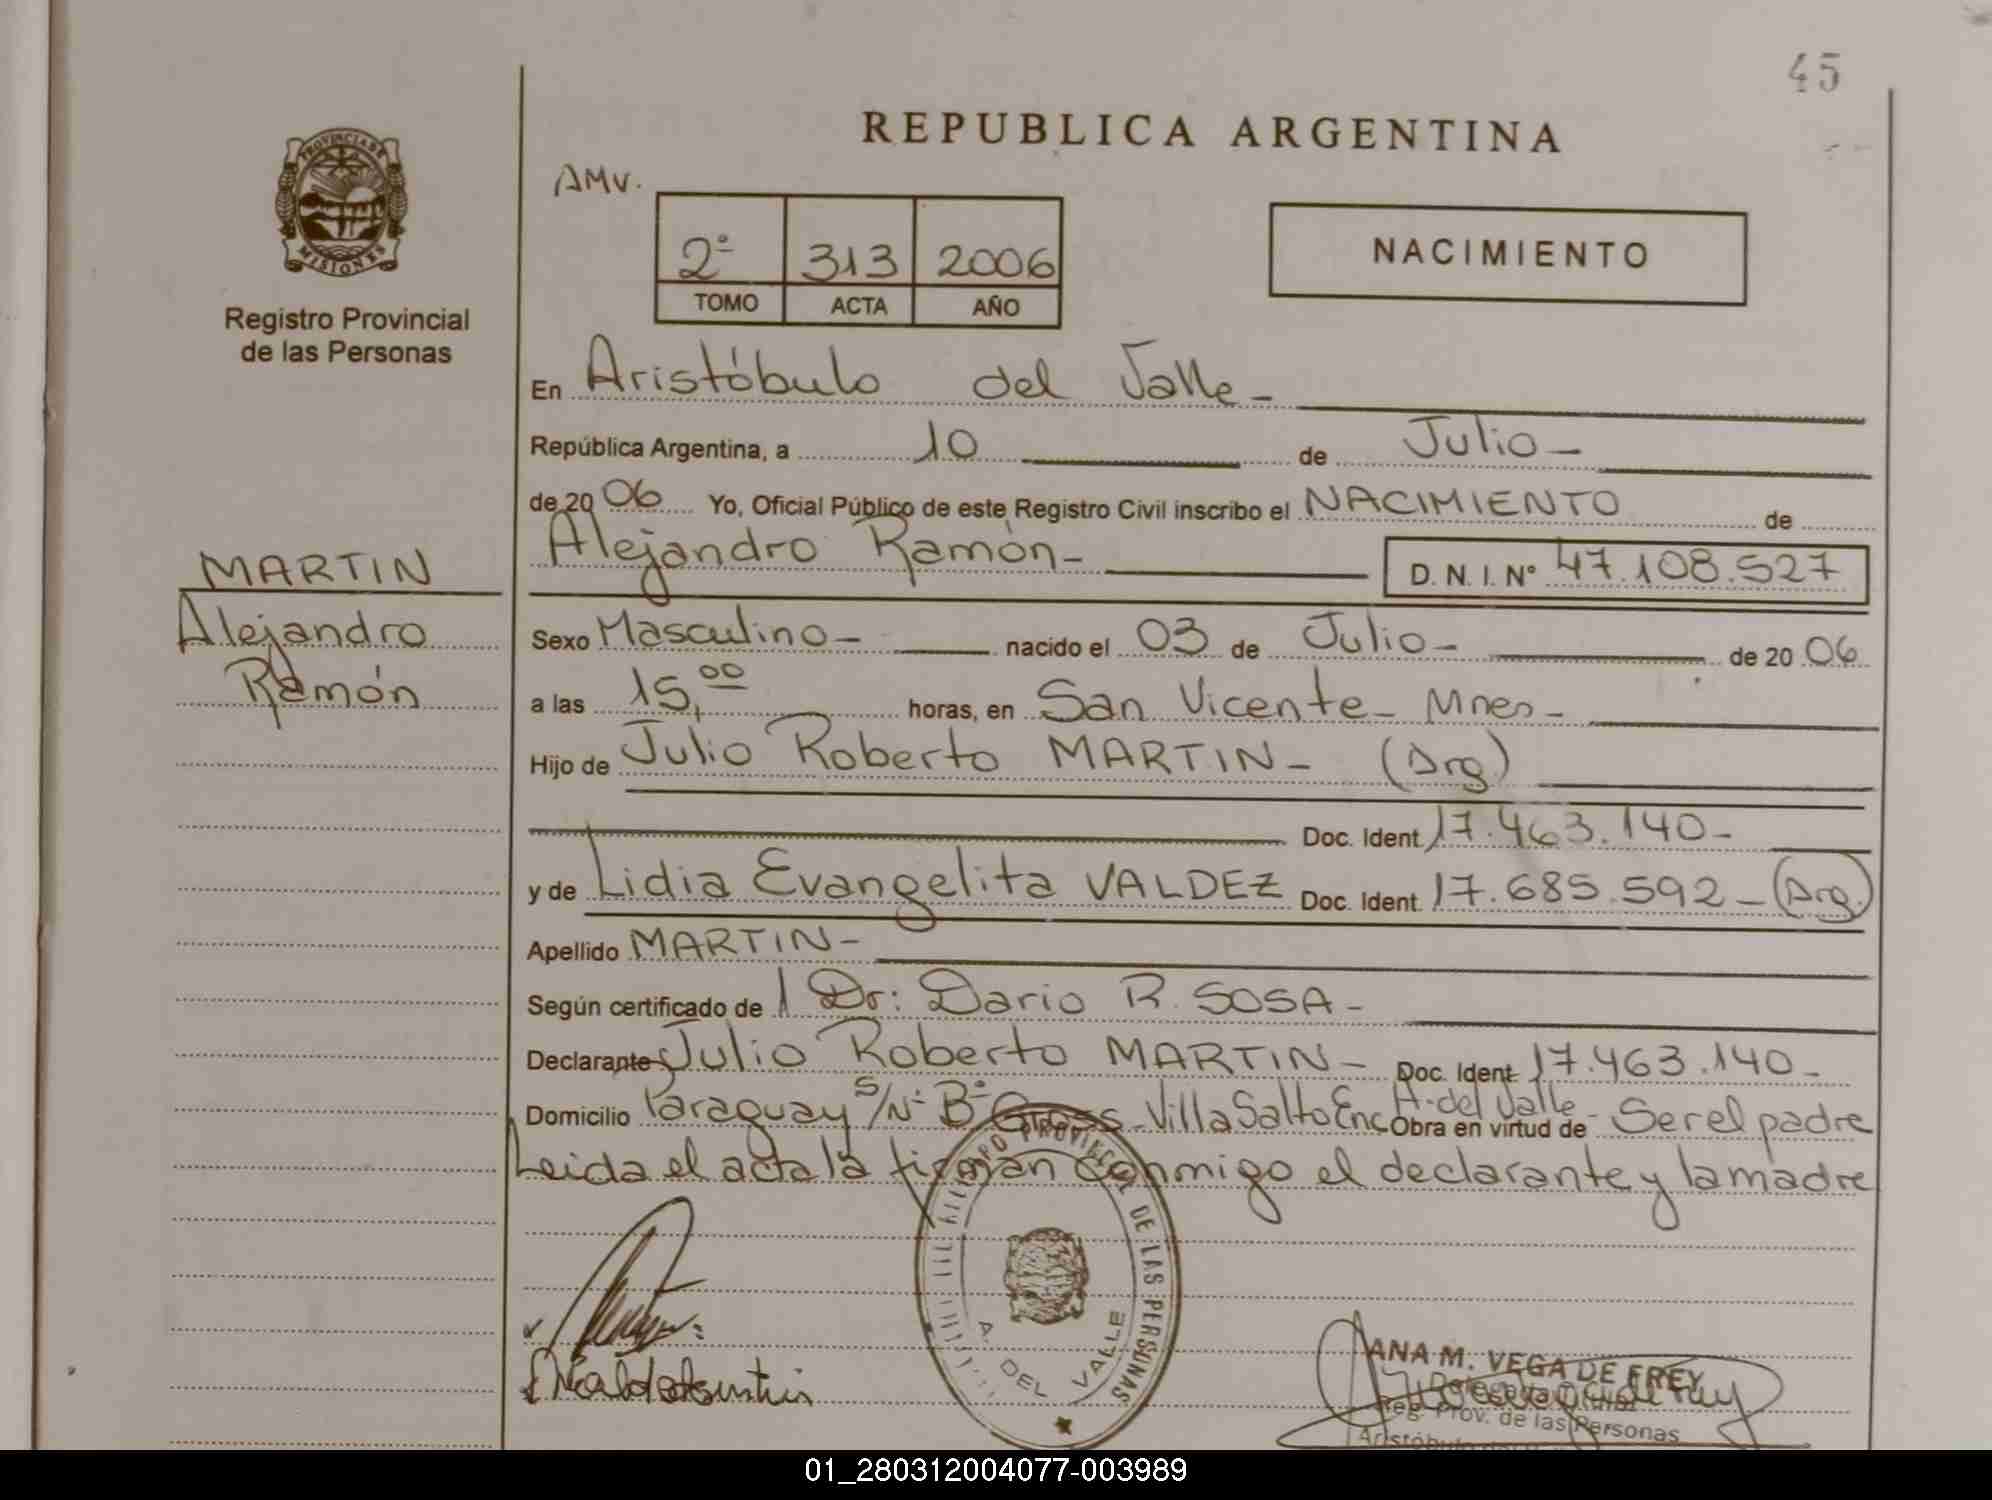 45
REPUBLICA ARGENTINA
PROVINCIA DE
MISIONES
Registro Provincial
de las Personas
AMV.
2º 313 2006
TOMO ACTA AÑO
NACIMIENTO
En Aristóbulo del Valle_
República Argentina, a 10 de Julio_
de 20 06 Yo, Oficial Público de este Registro Civil inscribo el NACIMIENTO de
Alejandro Ramón_ D. N. I. Nº 47.108.527
MARTIN
Alejandro
Ramón
Sexo Masculino_ nacido el 03 de Julio_ de 20 06
a las 15,00 horas, en San Vicente_ Mnes_
Hijo de Julio Roberto MARTIN_ (Arg.)
Doc. Ident. 17.463.140_
y de Lidia Evangelita VALDEZ Doc. Ident. 17.685.592_ (Arg.)
Apellido MARTIN_
Según certificado de Dr: Dario R. SOSA_
Declarante Julio Roberto MARTIN_ Doc. Ident. 17.463.140_
Domicilio Paraguay S/Nº Bº Gross_Villa Salto Enc A. del Valle_ Obra en virtud de Ser el padre
Leida el acta la firman conmigo el declarante y la madre
PROVINCIAL DE LAS PERSONAS
A. DEL VALLE
ANA M. VEGA DE FREY
Delegada Titular
Reg. Prov. de las Personas
01_280312004077-003989